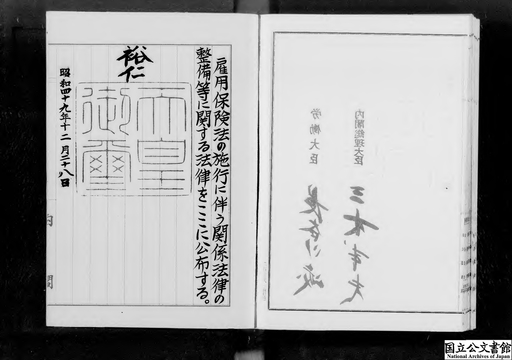 雇用保険法の施行に伴う関係法律の
整備等に関する法律をここに公布する。
裕仁
天皇
御璽
昭和四十九年十二月二十八日
内閣
内閣総理大臣
三木武夫
労働大臣
長谷川峻
国立公文書館
National Archives of Japan